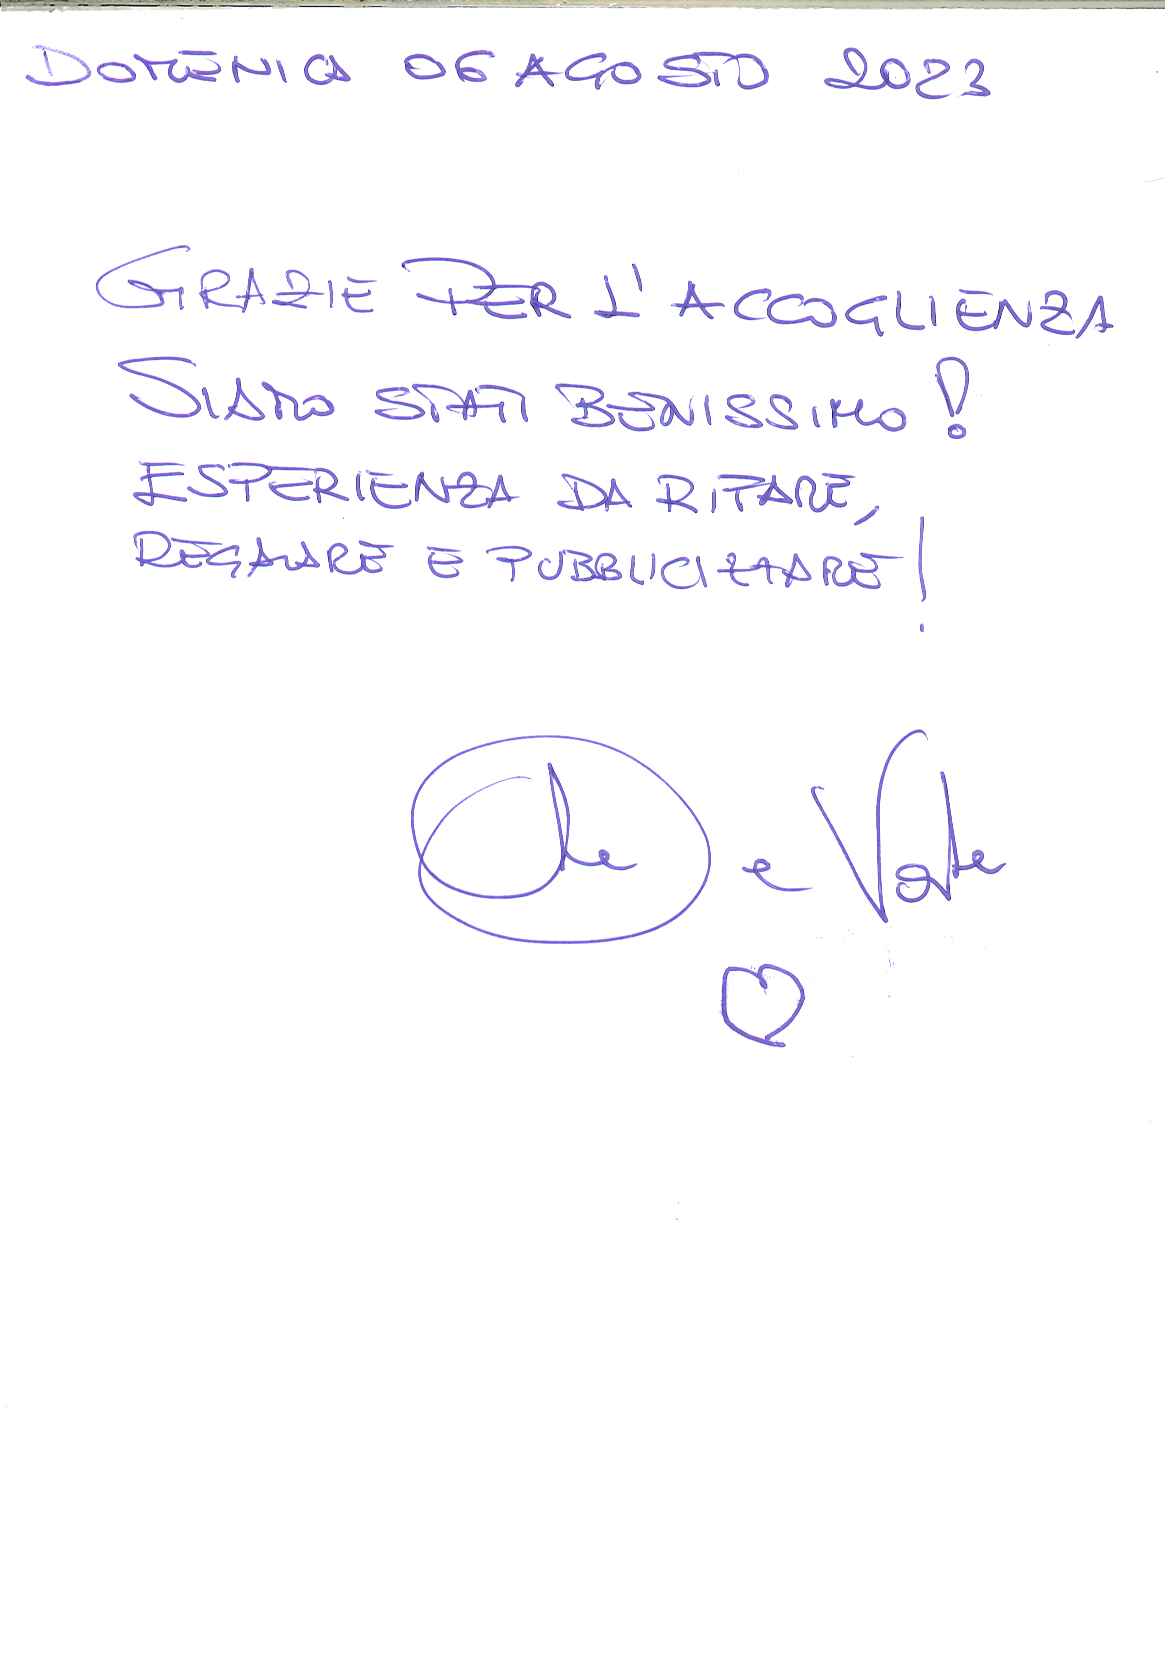 DOMENICA 06 AGOSTO 2023
GRAZIE PER L'ACCOGLIENZA
SIAMO STATI BENISSIMO!
ESPERIENZA DA RIFARE,
REGALARE E PUBBLICIZZARE!
e